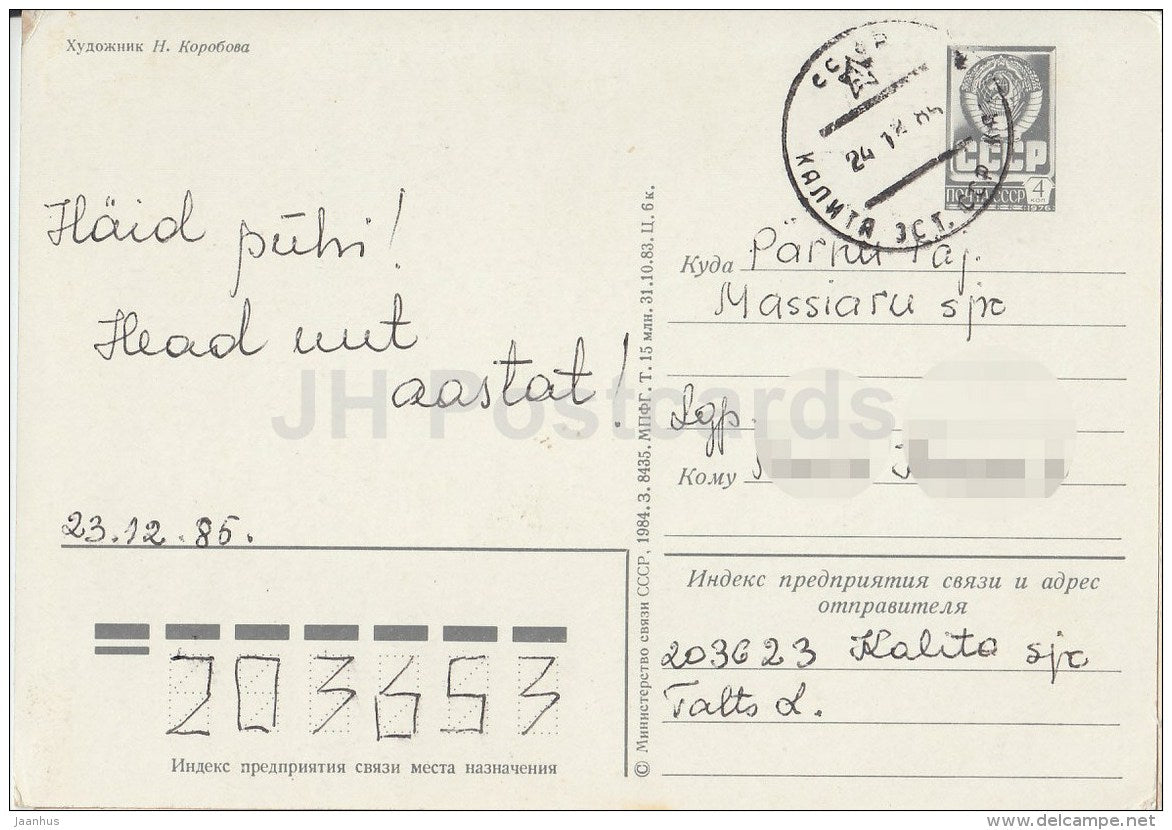 Художник Н. Коробова
СССР
24 12 85
КАЛИТА ЭСТ. ССР
СССР
ПОЧТА СССР 4 КОП
1976
Häid pühi!
Head uut
aastat!
23.12.85.
Куда Pärnu raj.
Massiaru sjk
Lgp.
Кому
Индекс предприятия связи и адрес
отправителя
203623 Kalita sjk
Talts L.
203653
Индекс предприятия связи места назначения
© Министерство связи СССР, 1984. З. 8435. МПФГ. Т. 15 млн. 31.10.83. Ц. 6 к.
JH Postcards
Jaanhus
www.delcampe.net